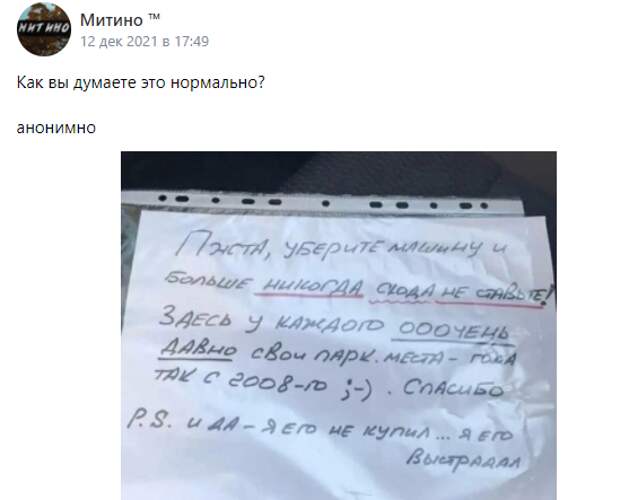 МИТИНО
Митино ™
12 дек 2021 в 17:49
Как вы думаете это нормально?
анонимно
Пжста, уберите машину и
больше никогда сюда не ставьте!
Здесь у каждого ооочень
давно свои парк. места -
так с 2008-го ;-) . Спасибо
P.S. и да - я его не купил... я его
выстрадал